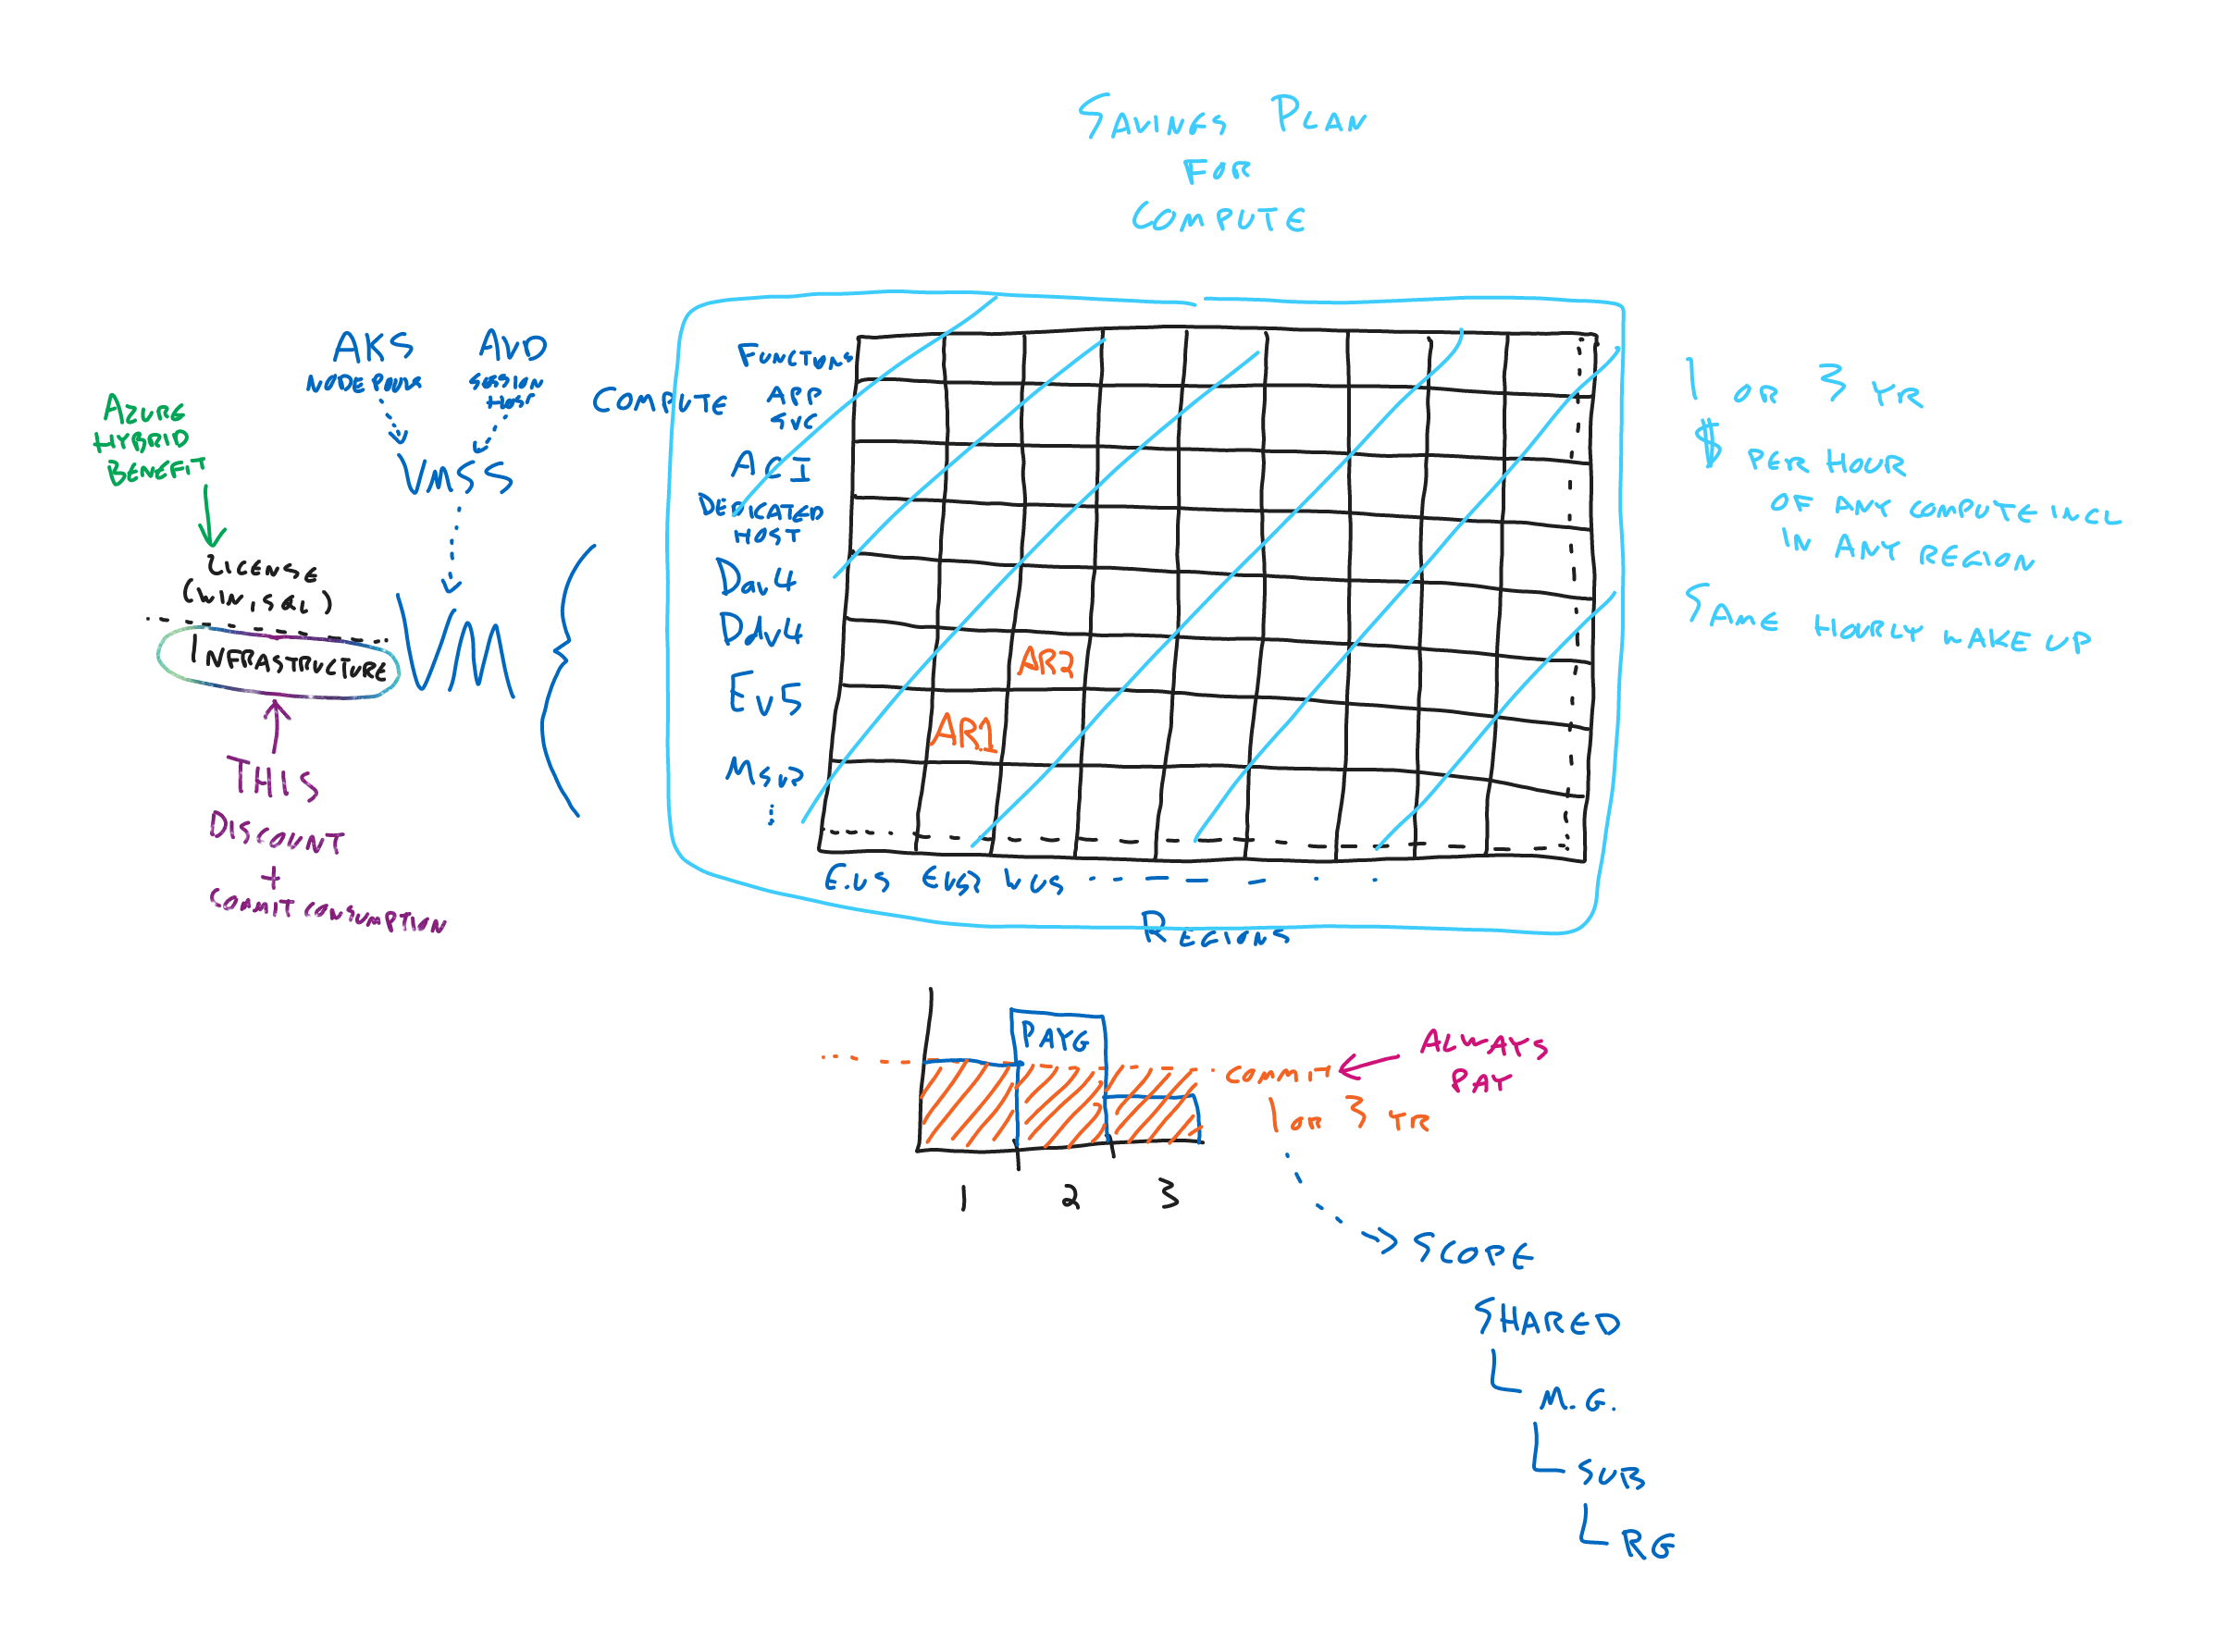 SAVINGS PLAN
FOR
COMPUTE
AKS
NODE POOLS
AVD
SESSION
HOST
VMSS
AZURE
HYBRID
BENEFIT
LICENSE
(WIN, SQL)
INFRASTRUCTURE
VM
THIS
DISCOUNT
+
COMMIT CONSUMPTION
COMPUTE
FUNCTIONS
APP
SVC
ACI
DEDICATED
HOST
Dav4
Ddv4
Ev5
Msv2
AR2
AR1
E.US EUS2 WUS
REGIONS
1 OR 3 YR
$ PER HOUR
OF ANY COMPUTE INCL
IN ANY REGION
SAME HOURLY WAKE UP
PAYG
COMMIT
1 OR 3 YR
ALWAYS
PAY
1 2 3
SCOPE
SHARED
M.G.
SUB
RG